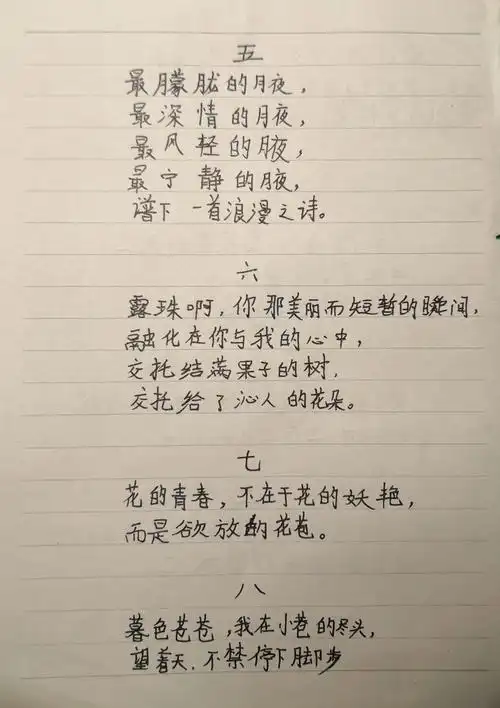 五
最朦胧的月夜，
最深情的月夜，
最风轻的月夜，
最宁静的月夜，
谱下一首浪漫之诗。
六
露珠啊，你那美丽而短暂的瞬间，
融化在你与我的心中，
交托结满果子的树，
交托给了沁人的花朵。
七
花的青春，不在于花的妖艳，
而是欲放的花苞。
八
暮色苍苍，我在小巷的尽头，
望着天，不禁停下脚步